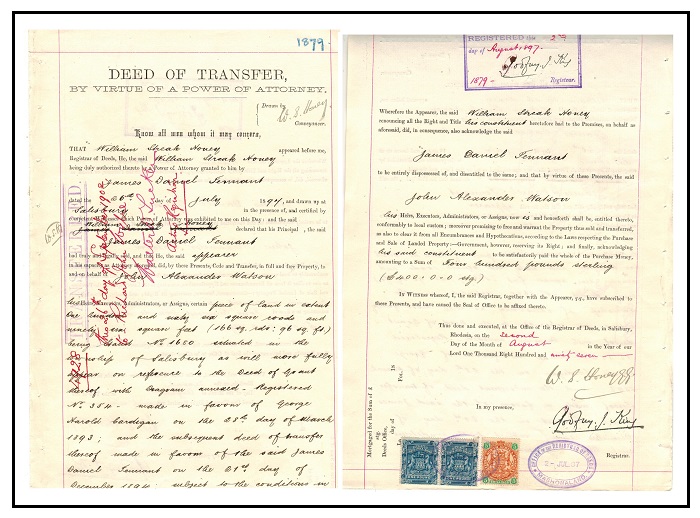 1879
DEED OF TRANSFER,
BY VIRTUE OF A POWER OF ATTORNEY.
Drawn by
W. S. Honey
Conveyancer.
Know all men whom it may concern,
THAT William Streak Honey appeared before me,
Registrar of Deeds, He, the said William Streak Honey
being duly authorized thereto by a Power of Attorney granted to him by
James Daniel Tennant
dated the 26th day of July 1897, and drawn up at
Salisbury in the presence of, and certified by
competent witnesses, which Power of Attorney was exhibited to me on this Day: and the said
William Streak Honey declared that his Principal, the said
James Daniel Tennant
had truly and legally sold, and that He, the said appearer
in his capacity as Attorney aforesaid, did, by these Presents, Cede and Transfer, in full and free Property, to
and on behalf of John Alexander Watson
his Heirs, Executors, Administrators, or Assigns, certain piece of land in extent
One hundred and sixty six square roods and
ninety six square feet (166 sq. rds: 96 sq. ft)
being Stand No 1650 situated in the
Township of Salisbury as will more fully
appear on reference to the Deed of Grant
thereof with Diagram annexed - Registered
No. 354 - made in favour of George
Harold Cardigan on the 28th day of March
1893; and the subsequent deed of transfer
thereof made in favour of the said James
Daniel Tennant on the 21st day of
December 1894; subject to the conditions in
REGISTERED the 2nd
day of August 1897.
Godfrey J. King
1879 Registrar.
Wherefore the Appearer, the said William Streak Honey
renouncing all the Right and Title his constituent heretofore had to the Premises, on behalf as
aforesaid, did, in consequence, also acknowledge the said
James Daniel Tennant
to be entirely dispossessed of, and disentitled to the same; and that by virtue of these Presents, the said
John Alexander Watson
his Heirs, Executors, Administrators, or Assigns, now is and henceforth shall be, entitled thereto,
conformably to local custom; moreover promising to free and warrant the Property thus sold and transferred,
as also to clear it from all Encumbrances and Hypothecations, according to the Laws respecting the Purchase
and Sale of Landed Property—Government, however, reserving its Right; and finally, acknowledging
his said constituent to be satisfactorily paid the whole of the Purchase Money,
amounting to a Sum of Four hundred pounds sterling
(£400-0-0 stg.)
IN WITNESS whereof, I, the said Registrar, together with the Appearer, q.q., have subscribed to
these Presents, and have caused the Seal of Office to be affixed thereto.
Thus done and executed, at the Office of the Registrar of Deeds, in Salisbury,
Rhodesia, on the second
Day of the Month of August in the Year of our
Lord One Thousand Eight Hundred and ninety seven
W. S. Honey q.q.
In my presence,
Godfrey J. King
Registrar.
Mortgaged for the Sum of £
stg.
Deeds Office,
day of
18